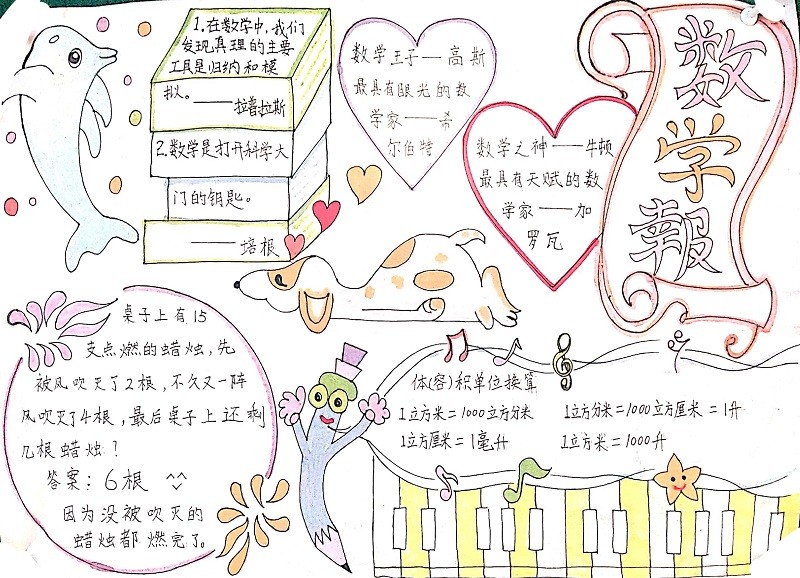 1.在数学中,我们
发现真理的主要
工具是归纳和模
拟。——拉普拉斯
2.数学是打开科学大
门的钥匙。
——培根
数学王子——高斯
最具有眼光的数
学家——希
尔伯特
数学之神——牛顿
最具有天赋的数
学家——加
罗瓦
数
学
報
桌子上有15
支点燃的蜡烛,先
被风吹灭了2根,不久又一阵
风吹灭了4根,最后桌子上还剩
几根蜡烛?
答案:6根
因为没被吹灭的
蜡烛都燃完了。
体(容)积单位换算
1立方米=1000立方分米
1立方分米=1000立方厘米=1升
1立方厘米=1毫升
1立方米=1000升